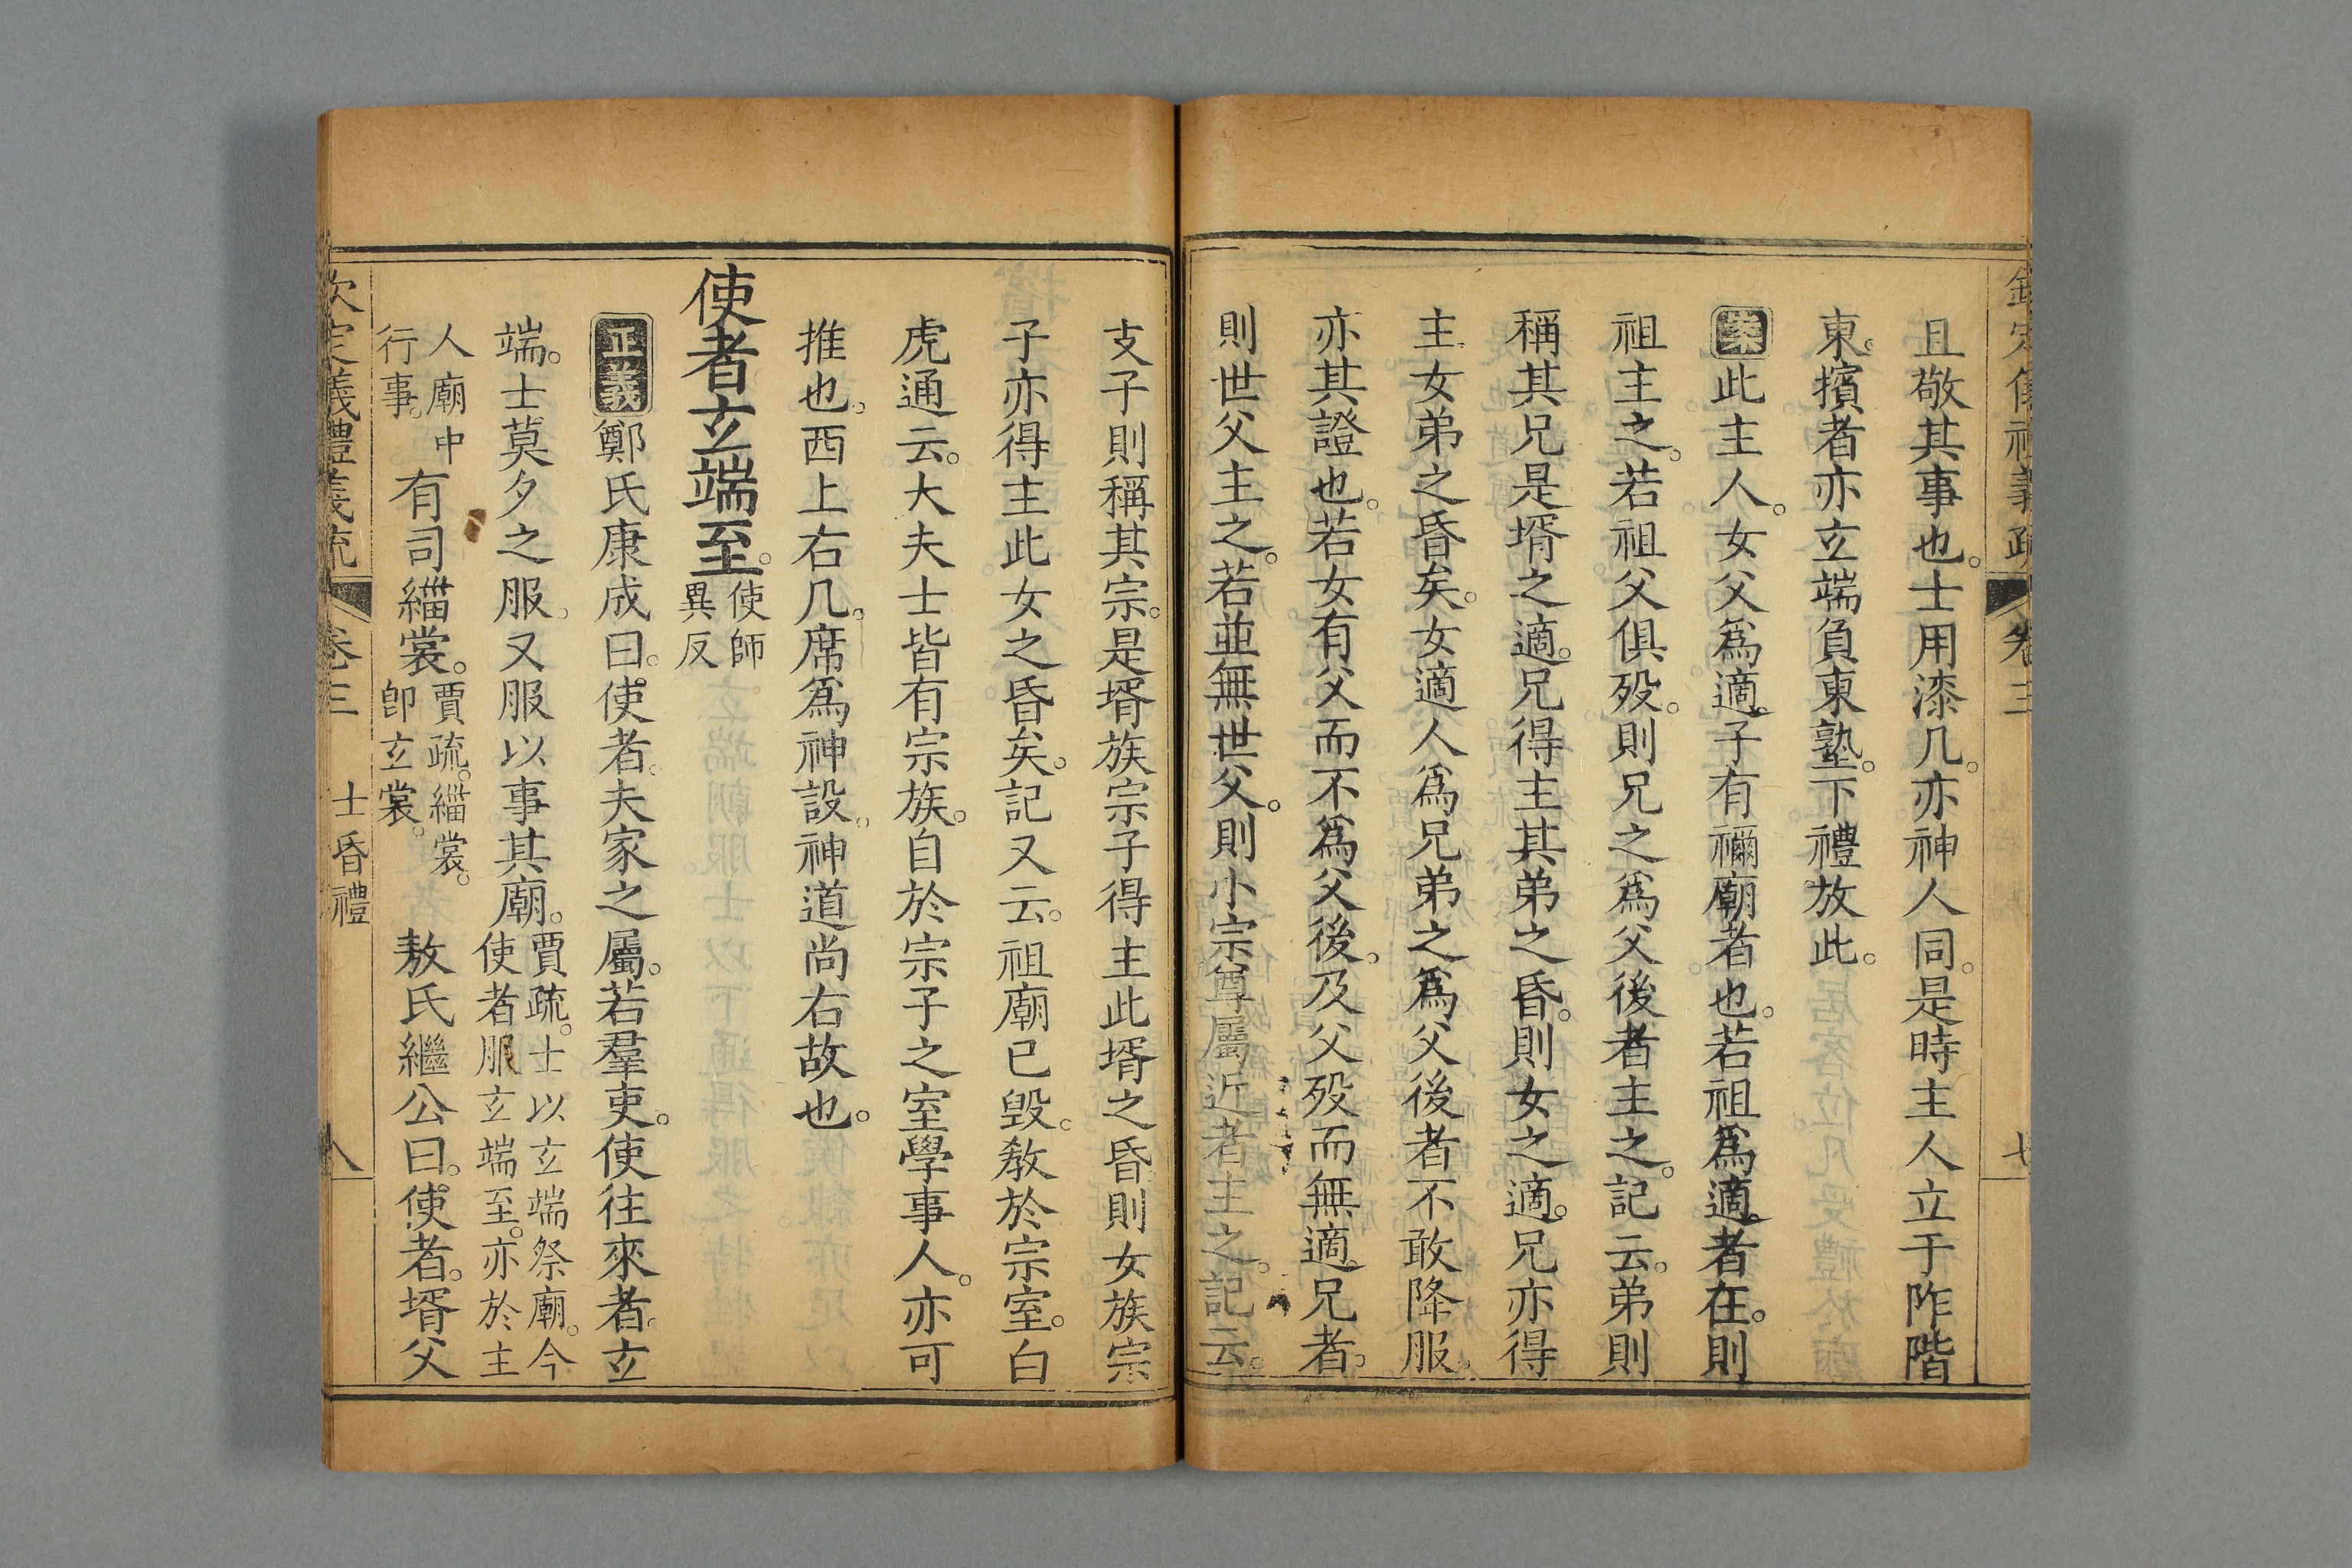 欽定儀禮義疏 卷三 七
且敬其事也。士用漆几。亦神人同。是時主人立于阼階
東。擯者亦玄端負東塾。下禮放此。
案此主人。女父爲適。子有禰廟者也。若祖爲適。者在。則
祖主之。若祖父俱歿。則兄之爲父後者主之。記云。弟則
稱其兄是壻之適。兄得主其弟之昏。則女之適。兄亦得
主女弟之昏矣。女適人爲兄弟之爲父後者不敢降服。
亦其證也。若女有父而不爲父後。及父歿而無適。兄者。
則世父主之。若並無世父。則小宗尊屬近者主之。記云。
支子則稱其宗。是壻族宗子得主此壻之昏則女族宗
子亦得主此女之昏矣。記又云。祖廟已毁。敎於宗室。白
虎通云。大夫士皆有宗族。自於宗子之室學事人。亦可
推也。西上右几。席爲神設。神道尚右故也。
使者玄端至。使師異反
正義鄭氏康成曰。使者。夫家之屬。若羣吏。使往來者。玄
端。士莫夕之服。又服以事其廟。賈疏。士以玄端祭廟。今使者服玄端至。亦於主
人廟中行事。有司緇裳。賈疏。緇裳。卽玄裳。敖氏繼公曰。使者。壻父
欽定義禮義疏 卷三 士昏禮 八